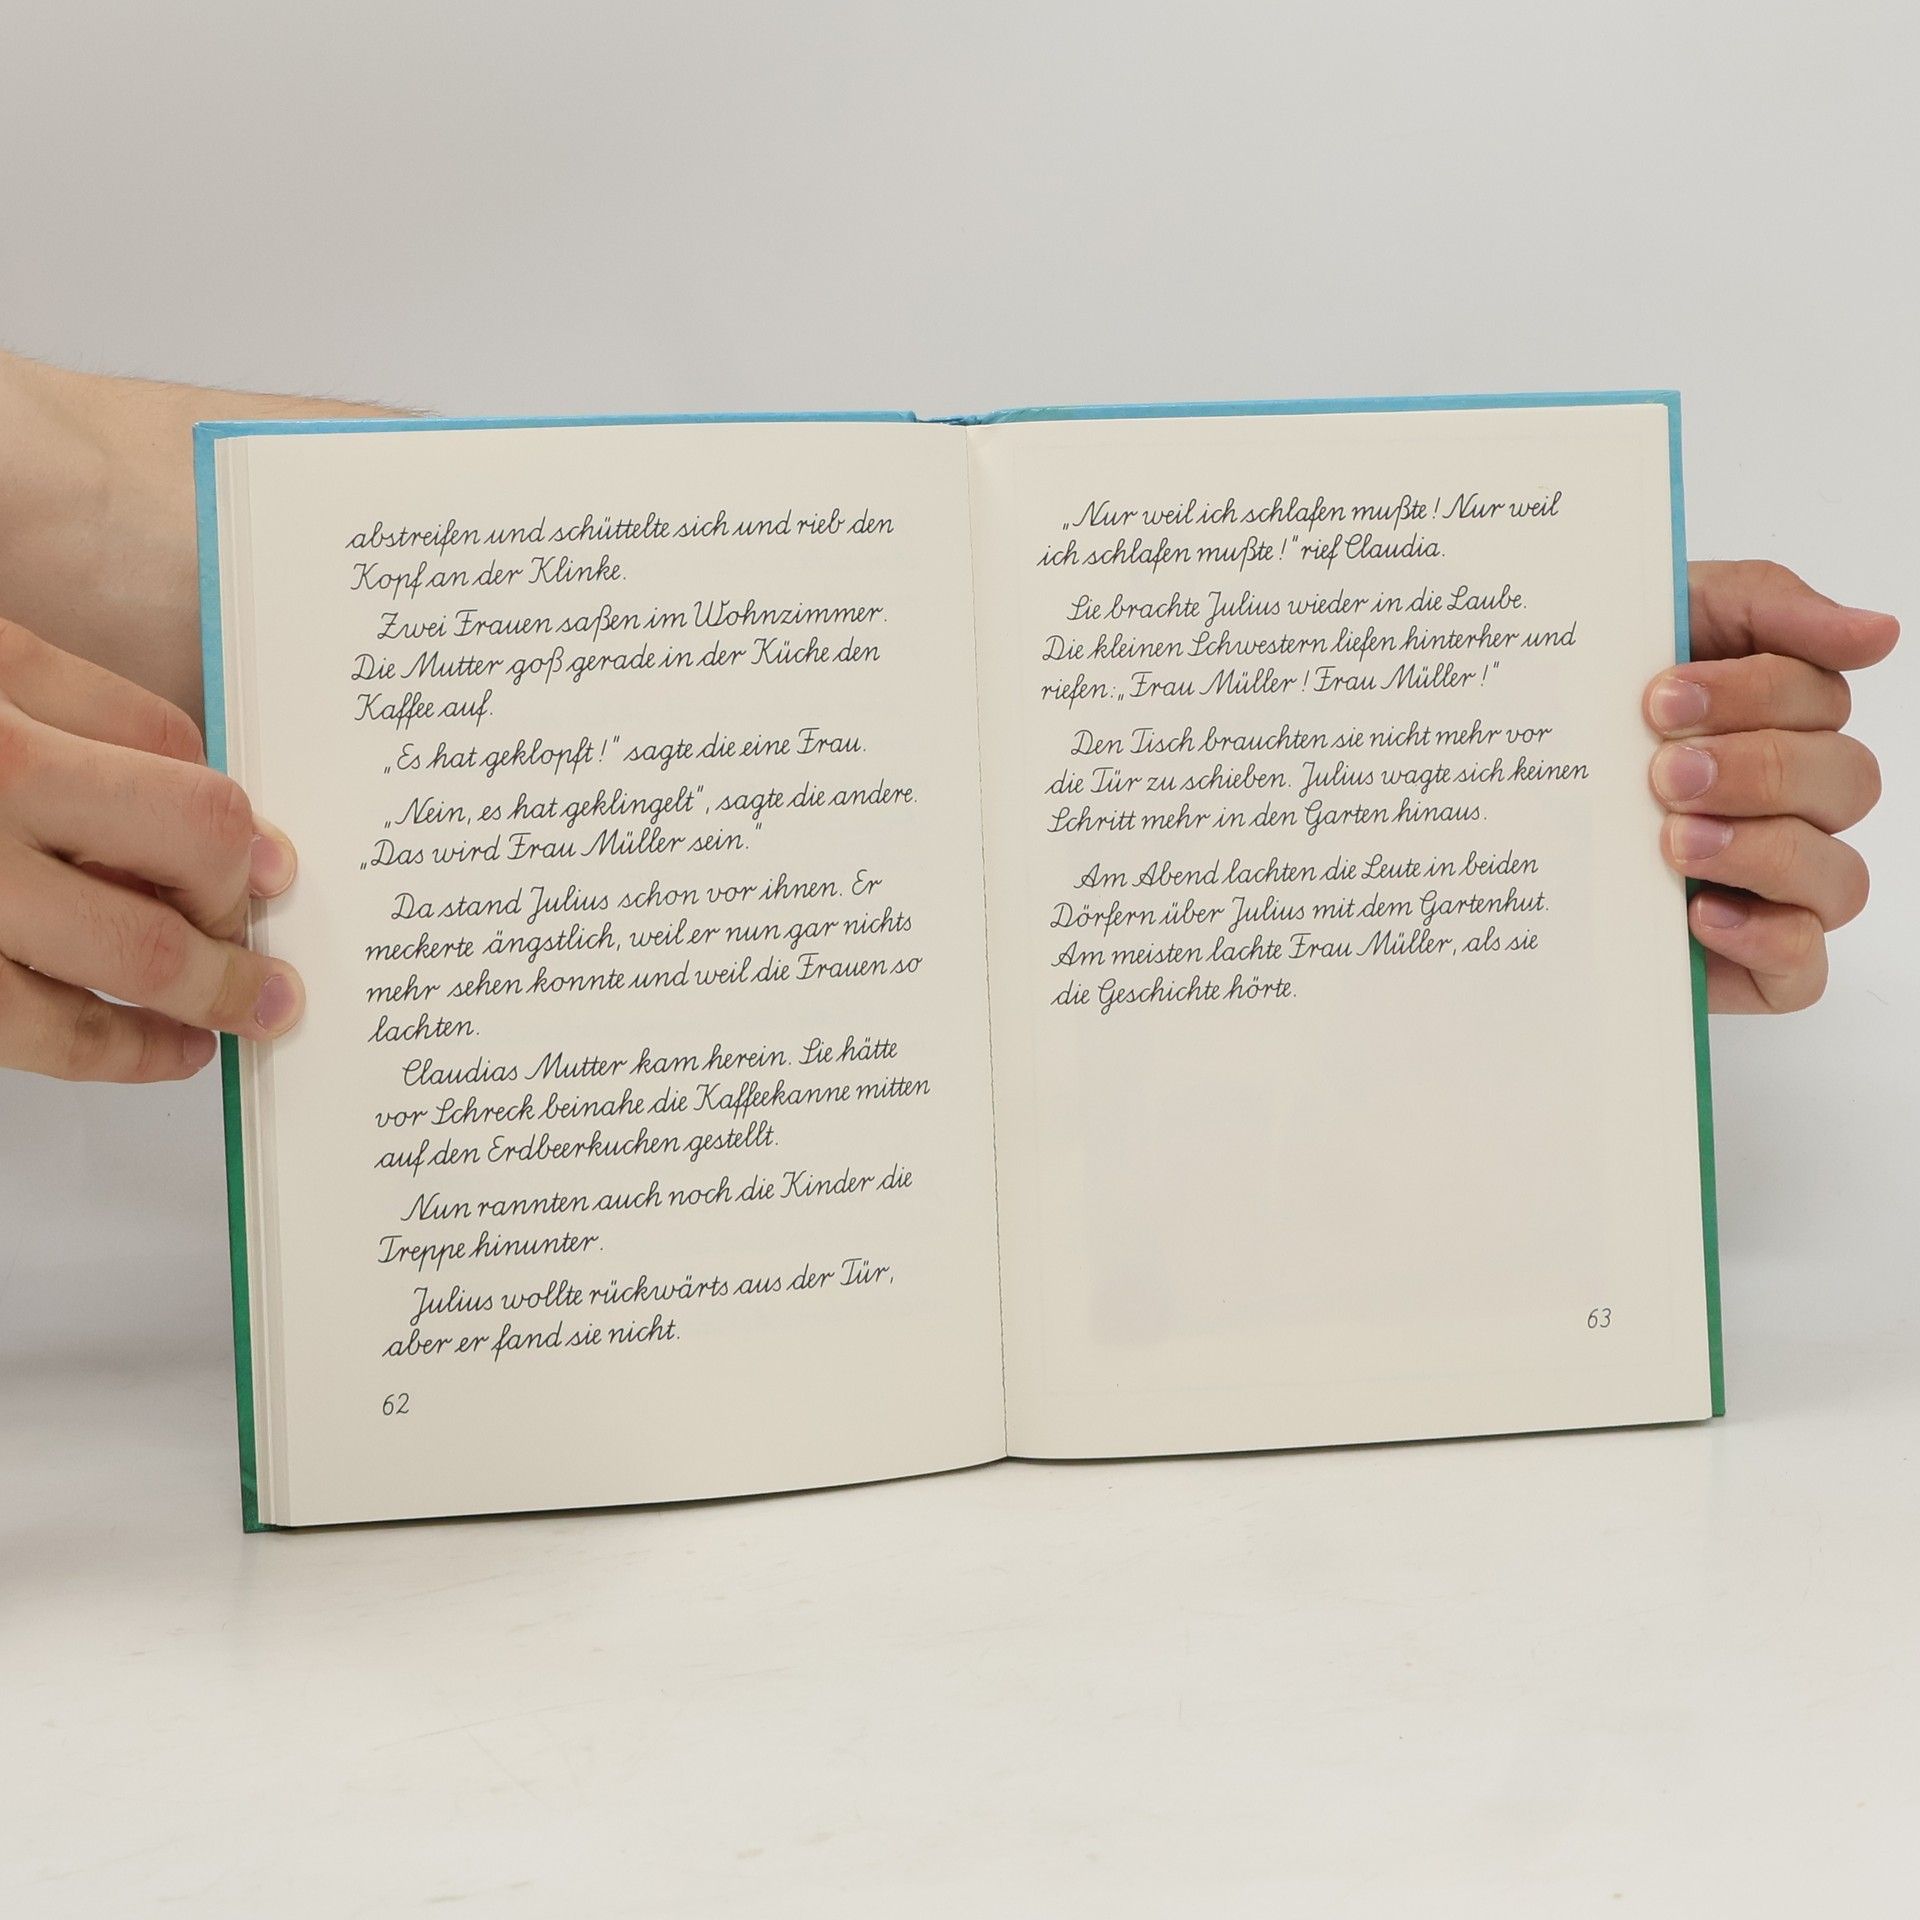 abstreifen und schüttelte sich und rieb den
Kopf an der Klinke.
Zwei Frauen saßen im Wohnzimmer.
Die Mutter goß gerade in der Küche den
Kaffee auf.
„Es hat geklopft!“ sagte die eine Frau.
„Nein, es hat geklingelt“, sagte die andere.
„Das wird Frau Müller sein.“
Da stand Julius schon vor ihnen. Er
meckerte ängstlich, weil er nun gar nichts
mehr sehen konnte und weil die Frauen so
lachten.
Claudias Mutter kam herein. Sie hätte
vor Schreck beinahe die Kaffeekanne mitten
auf den Erdbeerkuchen gestellt.
Nun rannten auch noch die Kinder die
Treppe hinunter.
Julius wollte rückwärts aus der Tür,
aber er fand sie nicht.
62
„Nur weil ich schlafen mußte! Nur weil
ich schlafen mußte!“ rief Claudia.
Sie brachte Julius wieder in die Laube.
Die kleinen Schwestern liefen hinterher und
riefen: „Frau Müller! Frau Müller!“
Den Tisch brauchten sie nicht mehr vor
die Tür zu schieben. Julius wagte sich keinen
Schritt mehr in den Garten hinaus.
Am Abend lachten die Leute in beiden
Dörfern über Julius mit dem Gartenhut.
Am meisten lachte Frau Müller, als sie
die Geschichte hörte.
63